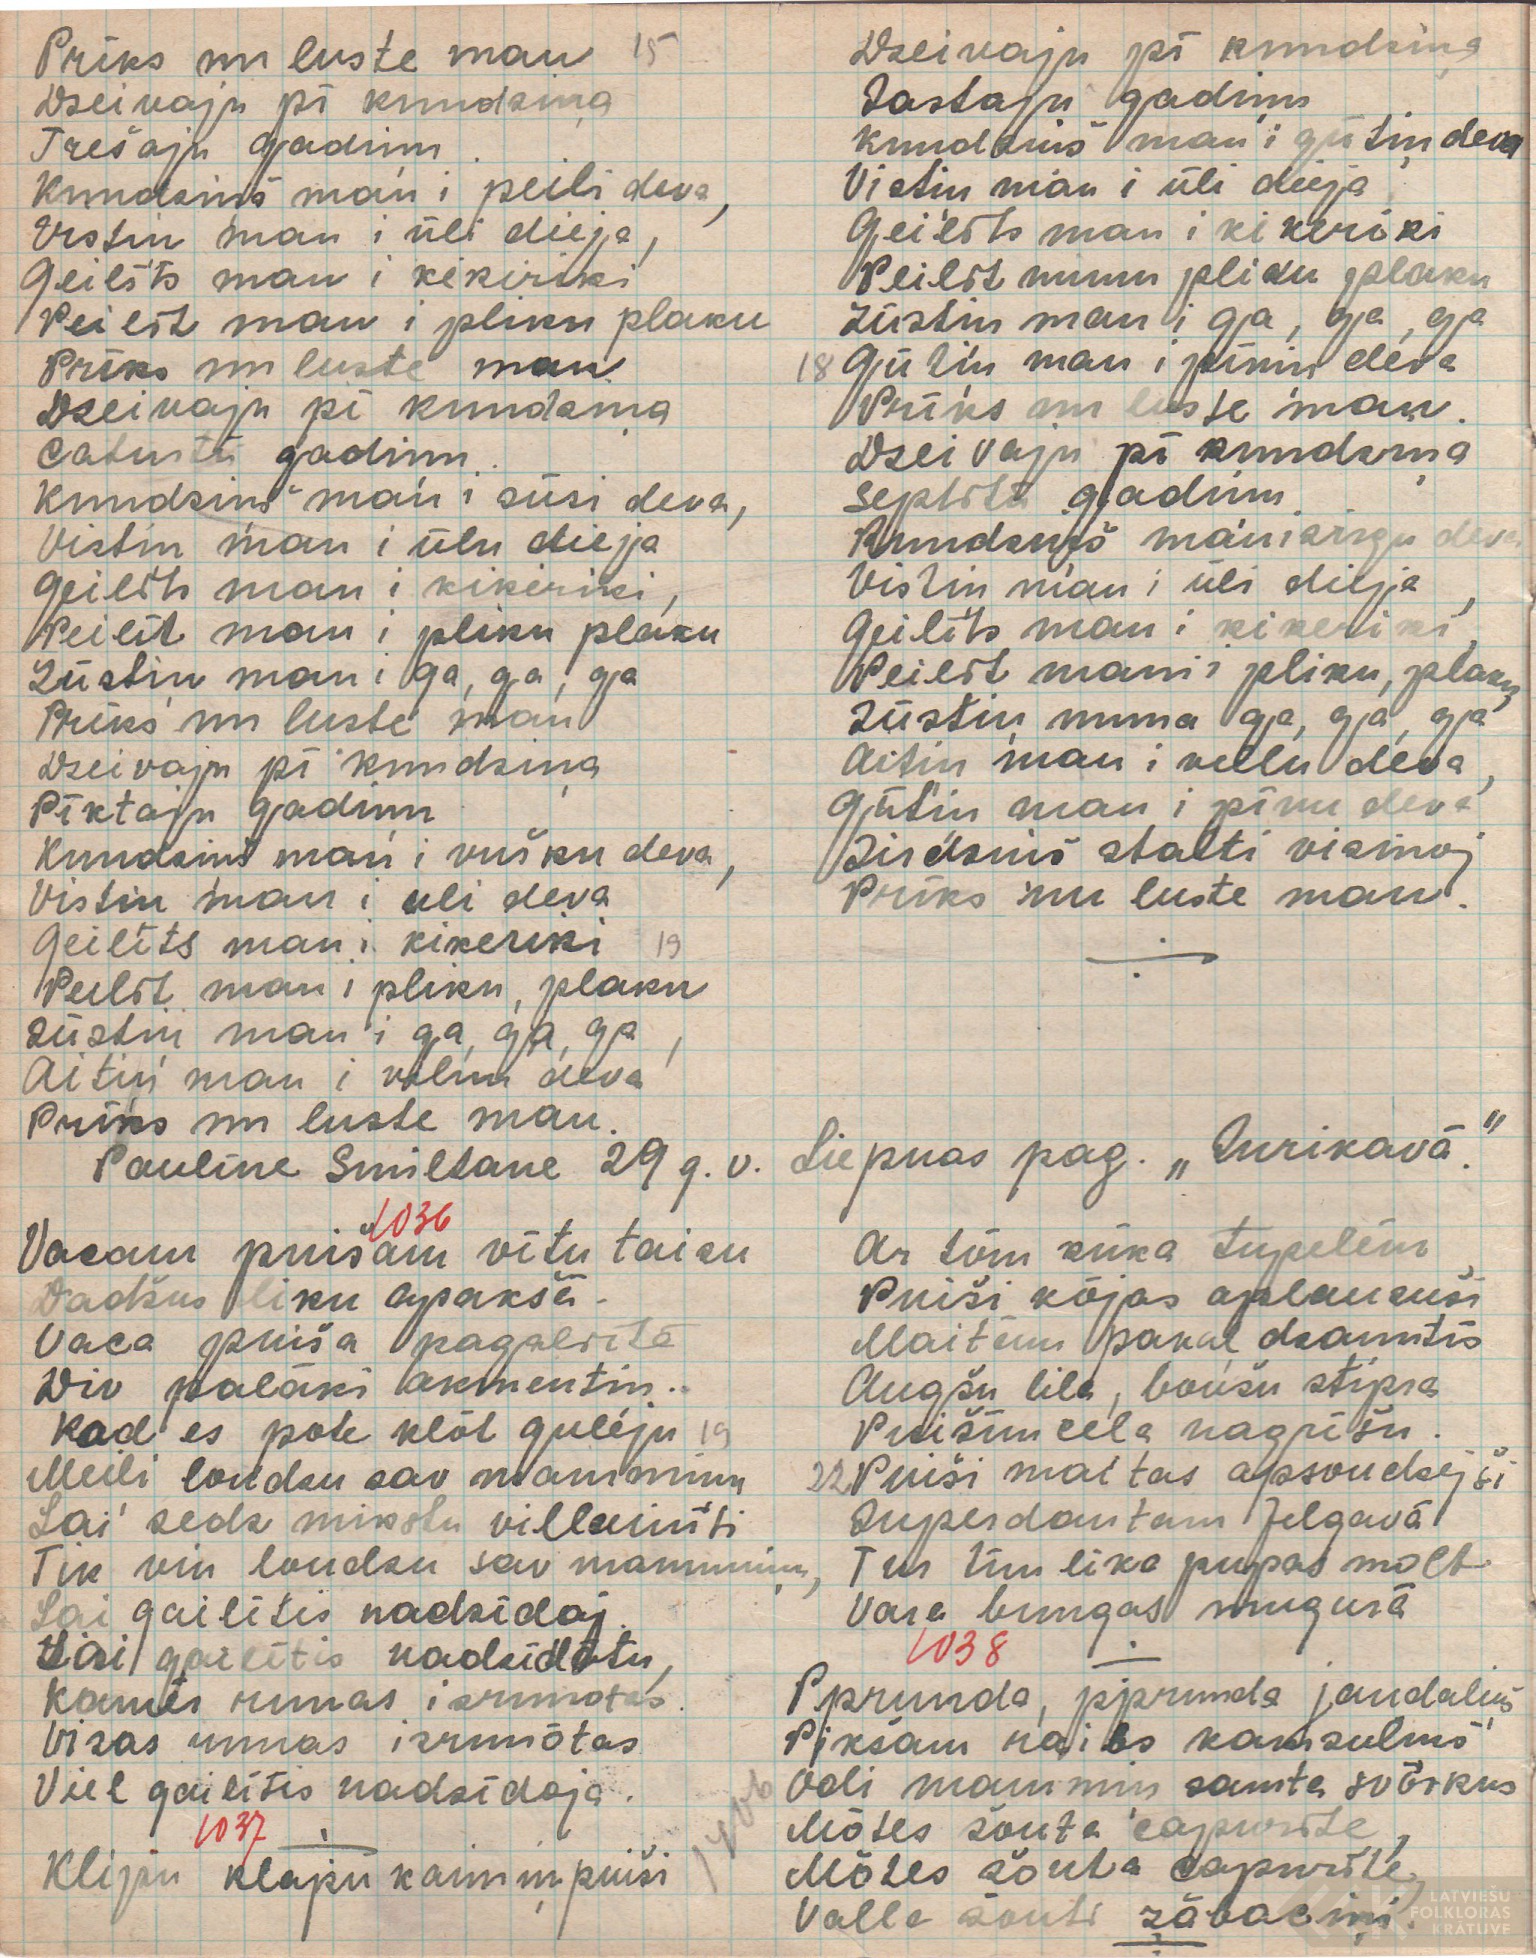 Prīks un luste man 15
Dzeivaju pī kundziņa
Trešaju gadiņu.
Kundziņš man i peili deva,
Vistiņ man i ūli dieja,
Geilīts man i kikiriki
Peilīt man i pliku plaku
Prīks un luste man
Dzeivaju pī kundziņa
Catuŗtū gadiņu.
Kundziņš man i zūsi deva,
Vistiņ man i ūlu dieja
Geilīts man i kikiriki,
Peilīt man i pliku plaku
Zūstiņ man i ga, ga, ga
Prīks un luste man
Dzeivaju pī kundziņa
Pīktaju gadiņu
Kundziņš man i vušku deva,
Vistiņ man i uli deva
Geilīts man i kikeriki 19
Peilīt man i pliku, plaku
Zūstiņ man i ga, ga, ga,
Aitiņ man i vilnu deva
Prīks un luste man.
Dzeivaju pī kundziņa
Sastaju gadiņu
Kundziņš man i gūtiņ deva
Vistiņ man i ūli dieja
Geilīts man i kikeriki
Peilīt munu pliku plaku
Zūstiņ man i ga, ga, ga
18 Gūtiņ man i pīniņ deva
Prīks un luste man.
Dzeivaju pī kundziņa
Septītū gadiņu
Kundziņš man i zirgu deva
Vistiņ man i ūli dieja,
Geilīts man i kikeriki,
Peilīt man i pliku, plaku,
Zūstiņ muna ga, ga, ga
Aitiņ man i vellu deva,
Gūtiņ man i pīnu deva
Zirdziņš stalti vizinoj
Prīks un luste man.
Paulīne Smiltane 29 g. v. Liepnas pag. „Surikavā."
1036
Vacam puišam vītu taisu
Dadžus liku apakšā.
Vaca puiša pagalvītē
Div palāki akmentiņ..
Kad es pate klōt gulēju 19
Meili loudzu sav mammiņu
Lai sedz mikstu villainīti
Tik viņ loudzu sav mammiņu,
Lai gailītis nadzīdaj.
Lai gailītis nadzīdōtu,
Kamēr runas izrunotas.
Visas runas izrunōtas
Viel gailītis nadzīdoja.
1037
Klipu klapu kaimiņ puiši
Ar tōm kūka tupelēm
Puiši kōjas aplauzuši
Maitām pakaļ dzamtīs
Augšu lila, boušu stipra
Puišim ceļa nagrīšu.
22 Puiši maitas apsoudzejši
Superdantam Jelgavā
Tur tīm lika pupas molt
Vara bungas mugurā
1038
Pprunda, pprunda jaudaliņš
Pikšam raibs kamzuliņš
Odi mammiņ zamta svōrkus
Mōtes šouta capurīte,
Mōtes šouta capurīte,
Valle šouti zābaciņi.
1406
LATVIEŠU
FOLKLORAS
KRĀTUVE